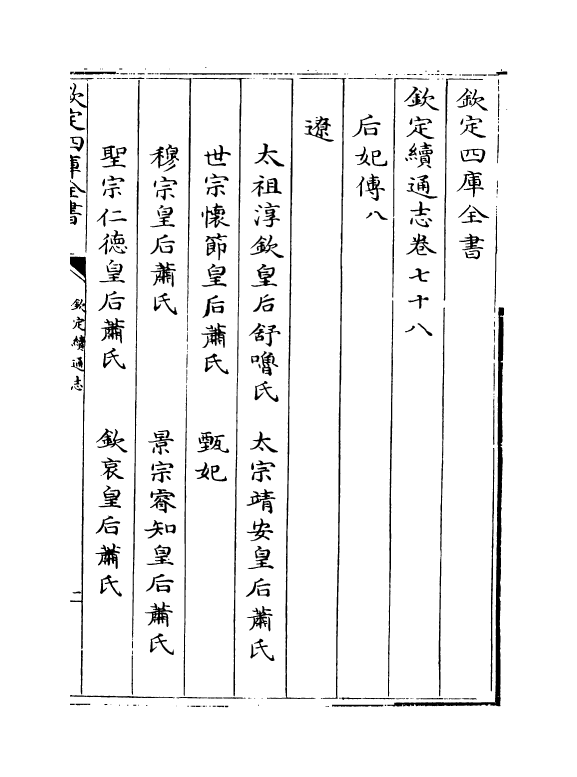 欽定四庫全書
欽定續通志卷七十八
后妃傳八
遼
太祖淳欽皇后舒嚕氏 太宗靖安皇后蕭氏
世宗懷節皇后蕭氏 甄妃
穆宗皇后蕭氏 景宗睿知皇后蕭氏
聖宗仁德皇后蕭氏 欽哀皇后蕭氏
欽定四庫全書 欽定續通志